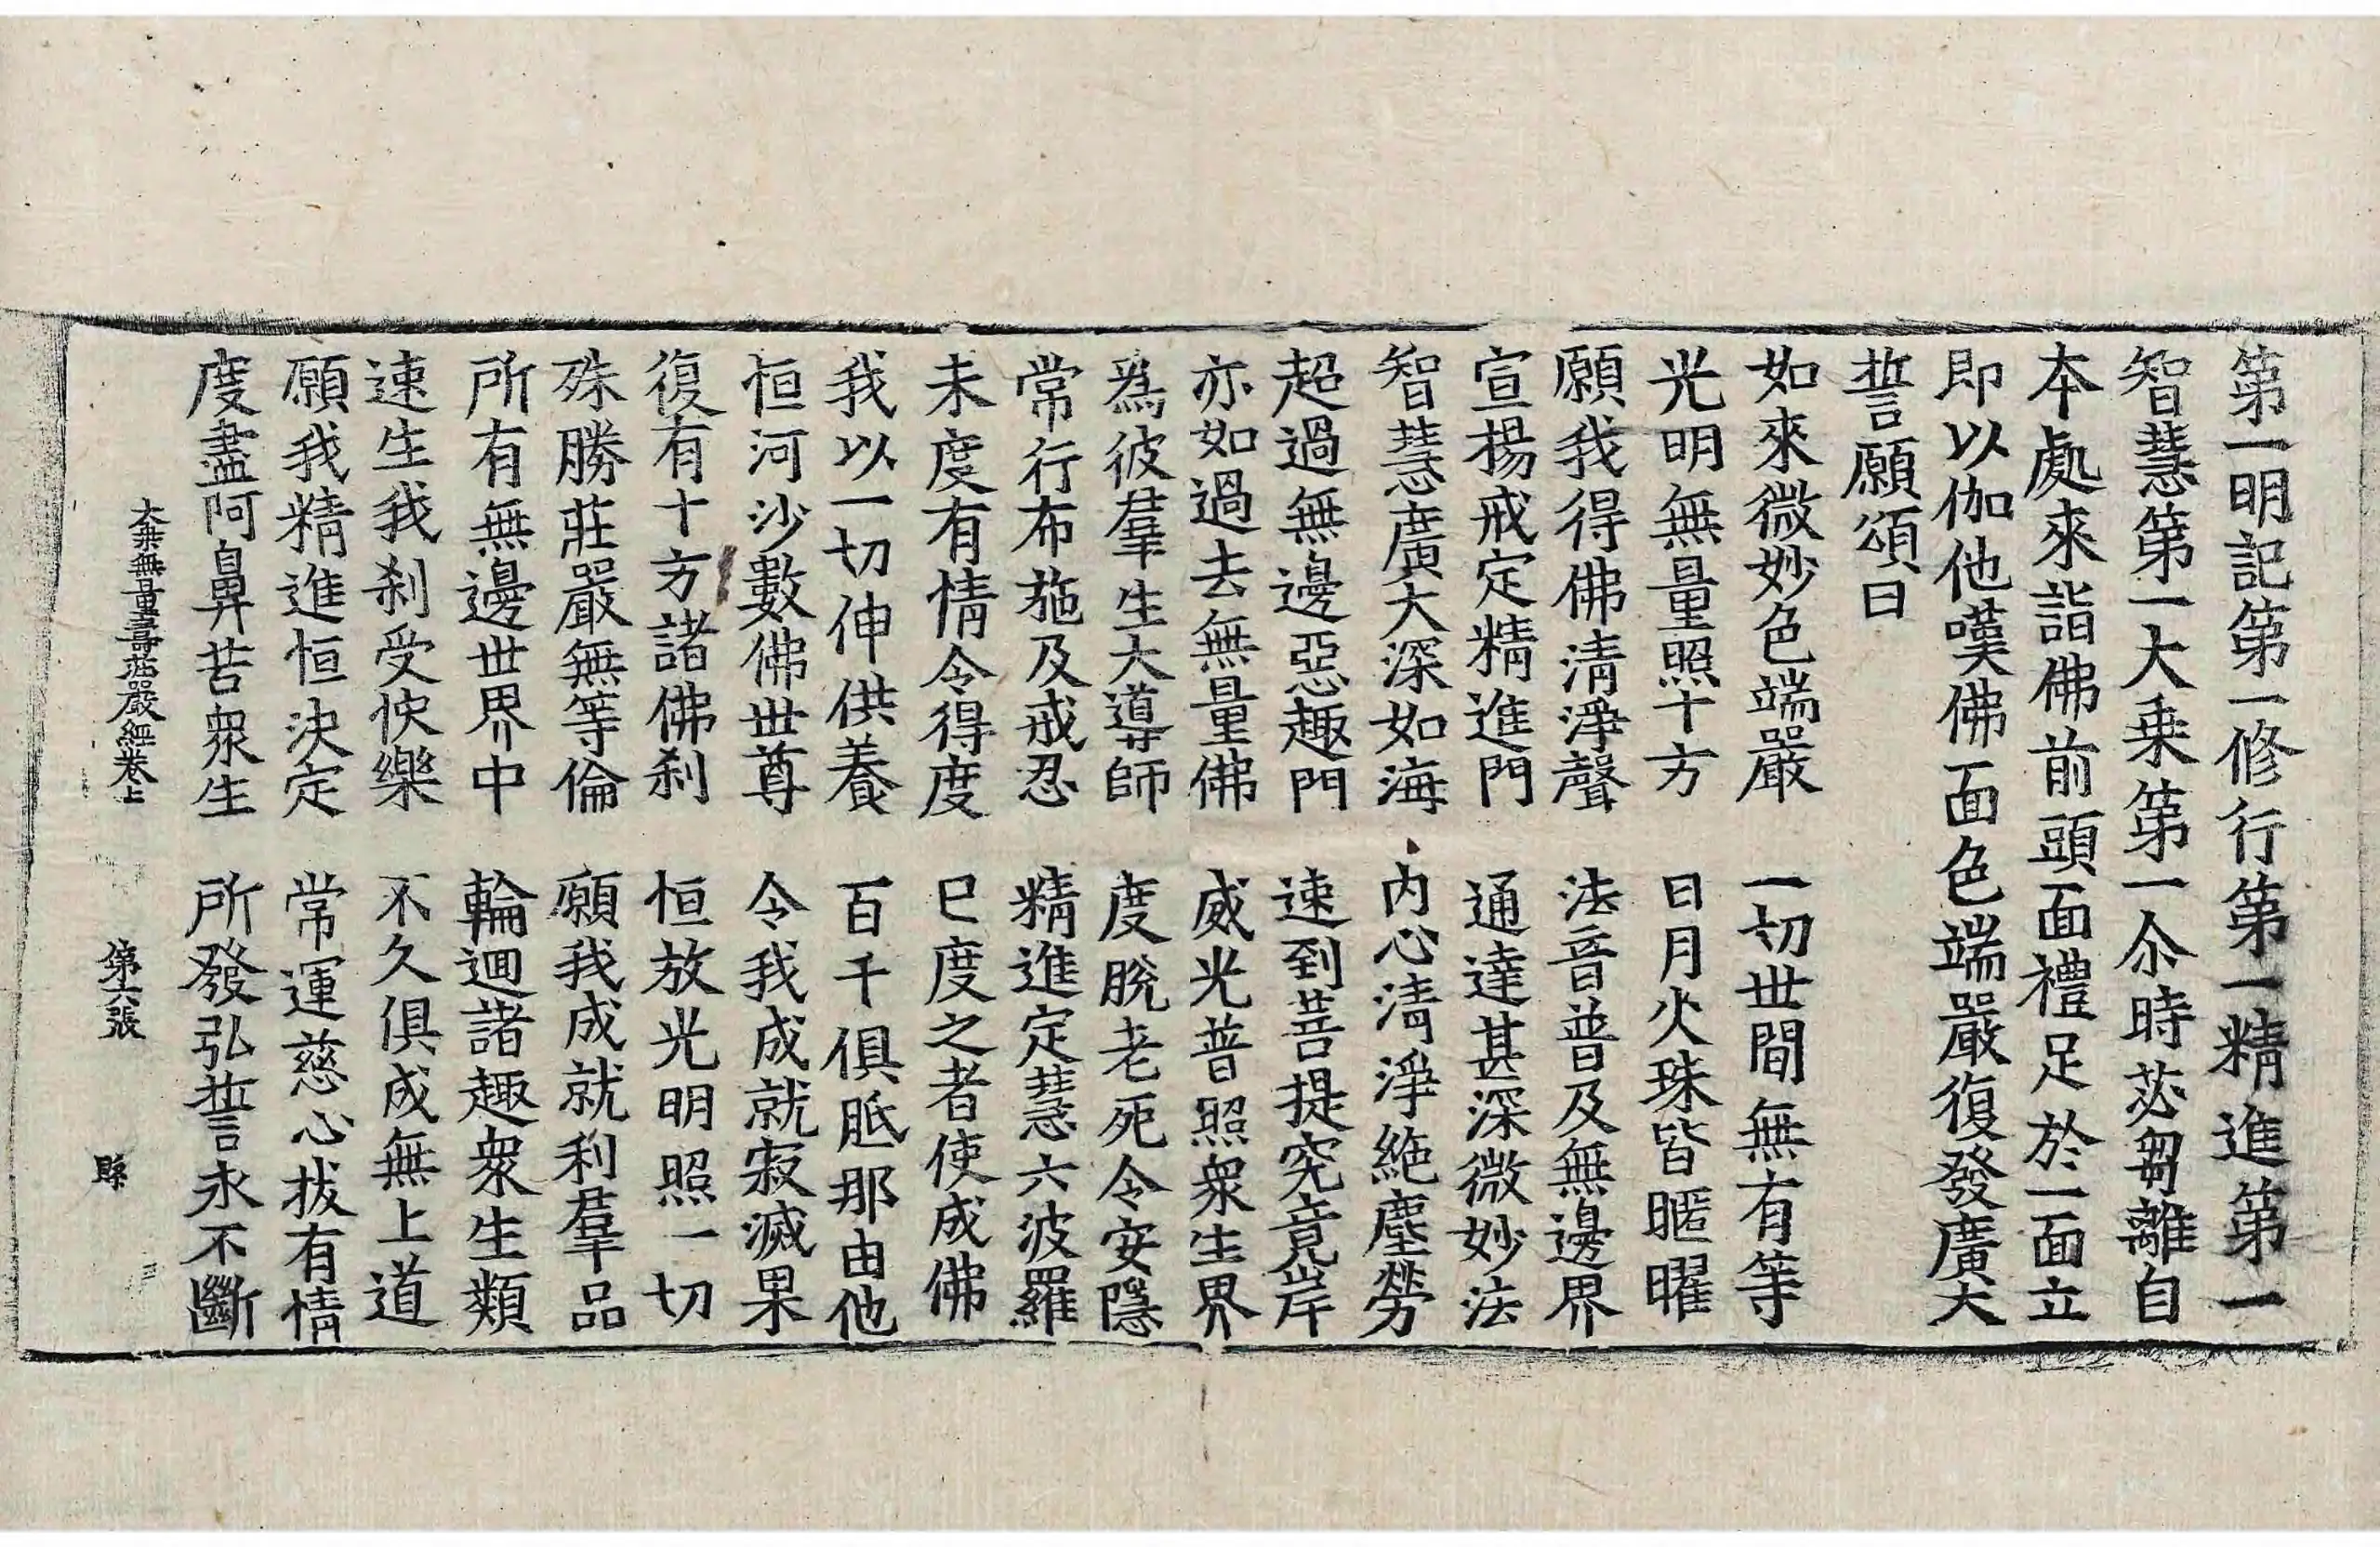 第一明記第一修行第一精進第一
智慧第一大乗第一尒時苾芻離自
本處來詣佛前頭面禮足於一面立
即以伽他嘆佛面色端嚴復發廣大
誓願頌曰
如來微妙色端嚴　一切世間無有等
光明無量照十方　日月火珠皆匿曜
願我得佛清淨聲　法音普及無邊界
宣揚戒定精進門　通達甚深微妙法
智慧廣大深如海　内心清淨絶塵勞
超過無邊惡趣門　速到菩提究竟岸
亦如過去無量佛　威光普照衆生界
為彼羣生大導師　度脫老死令安隱
常行布施及戒忍　精進定慧六波羅
未度有情令得度　已度之者使成佛
我以一切伸供養　百千俱胝那由他
恒河沙數佛世尊　令我成就寂滅果
復有十方諸佛刹　恒放光明照一切
殊勝莊嚴無等倫　願我成就利羣品
所有無邊世界中　輪迴諸趣衆生類
速生我刹受快樂　不久俱成無上道
願我精進恒決定　常運慈心拔有情
度盡阿鼻苦衆生　所發弘誓永不斷
大乘無量壽莊嚴經卷上　第六張